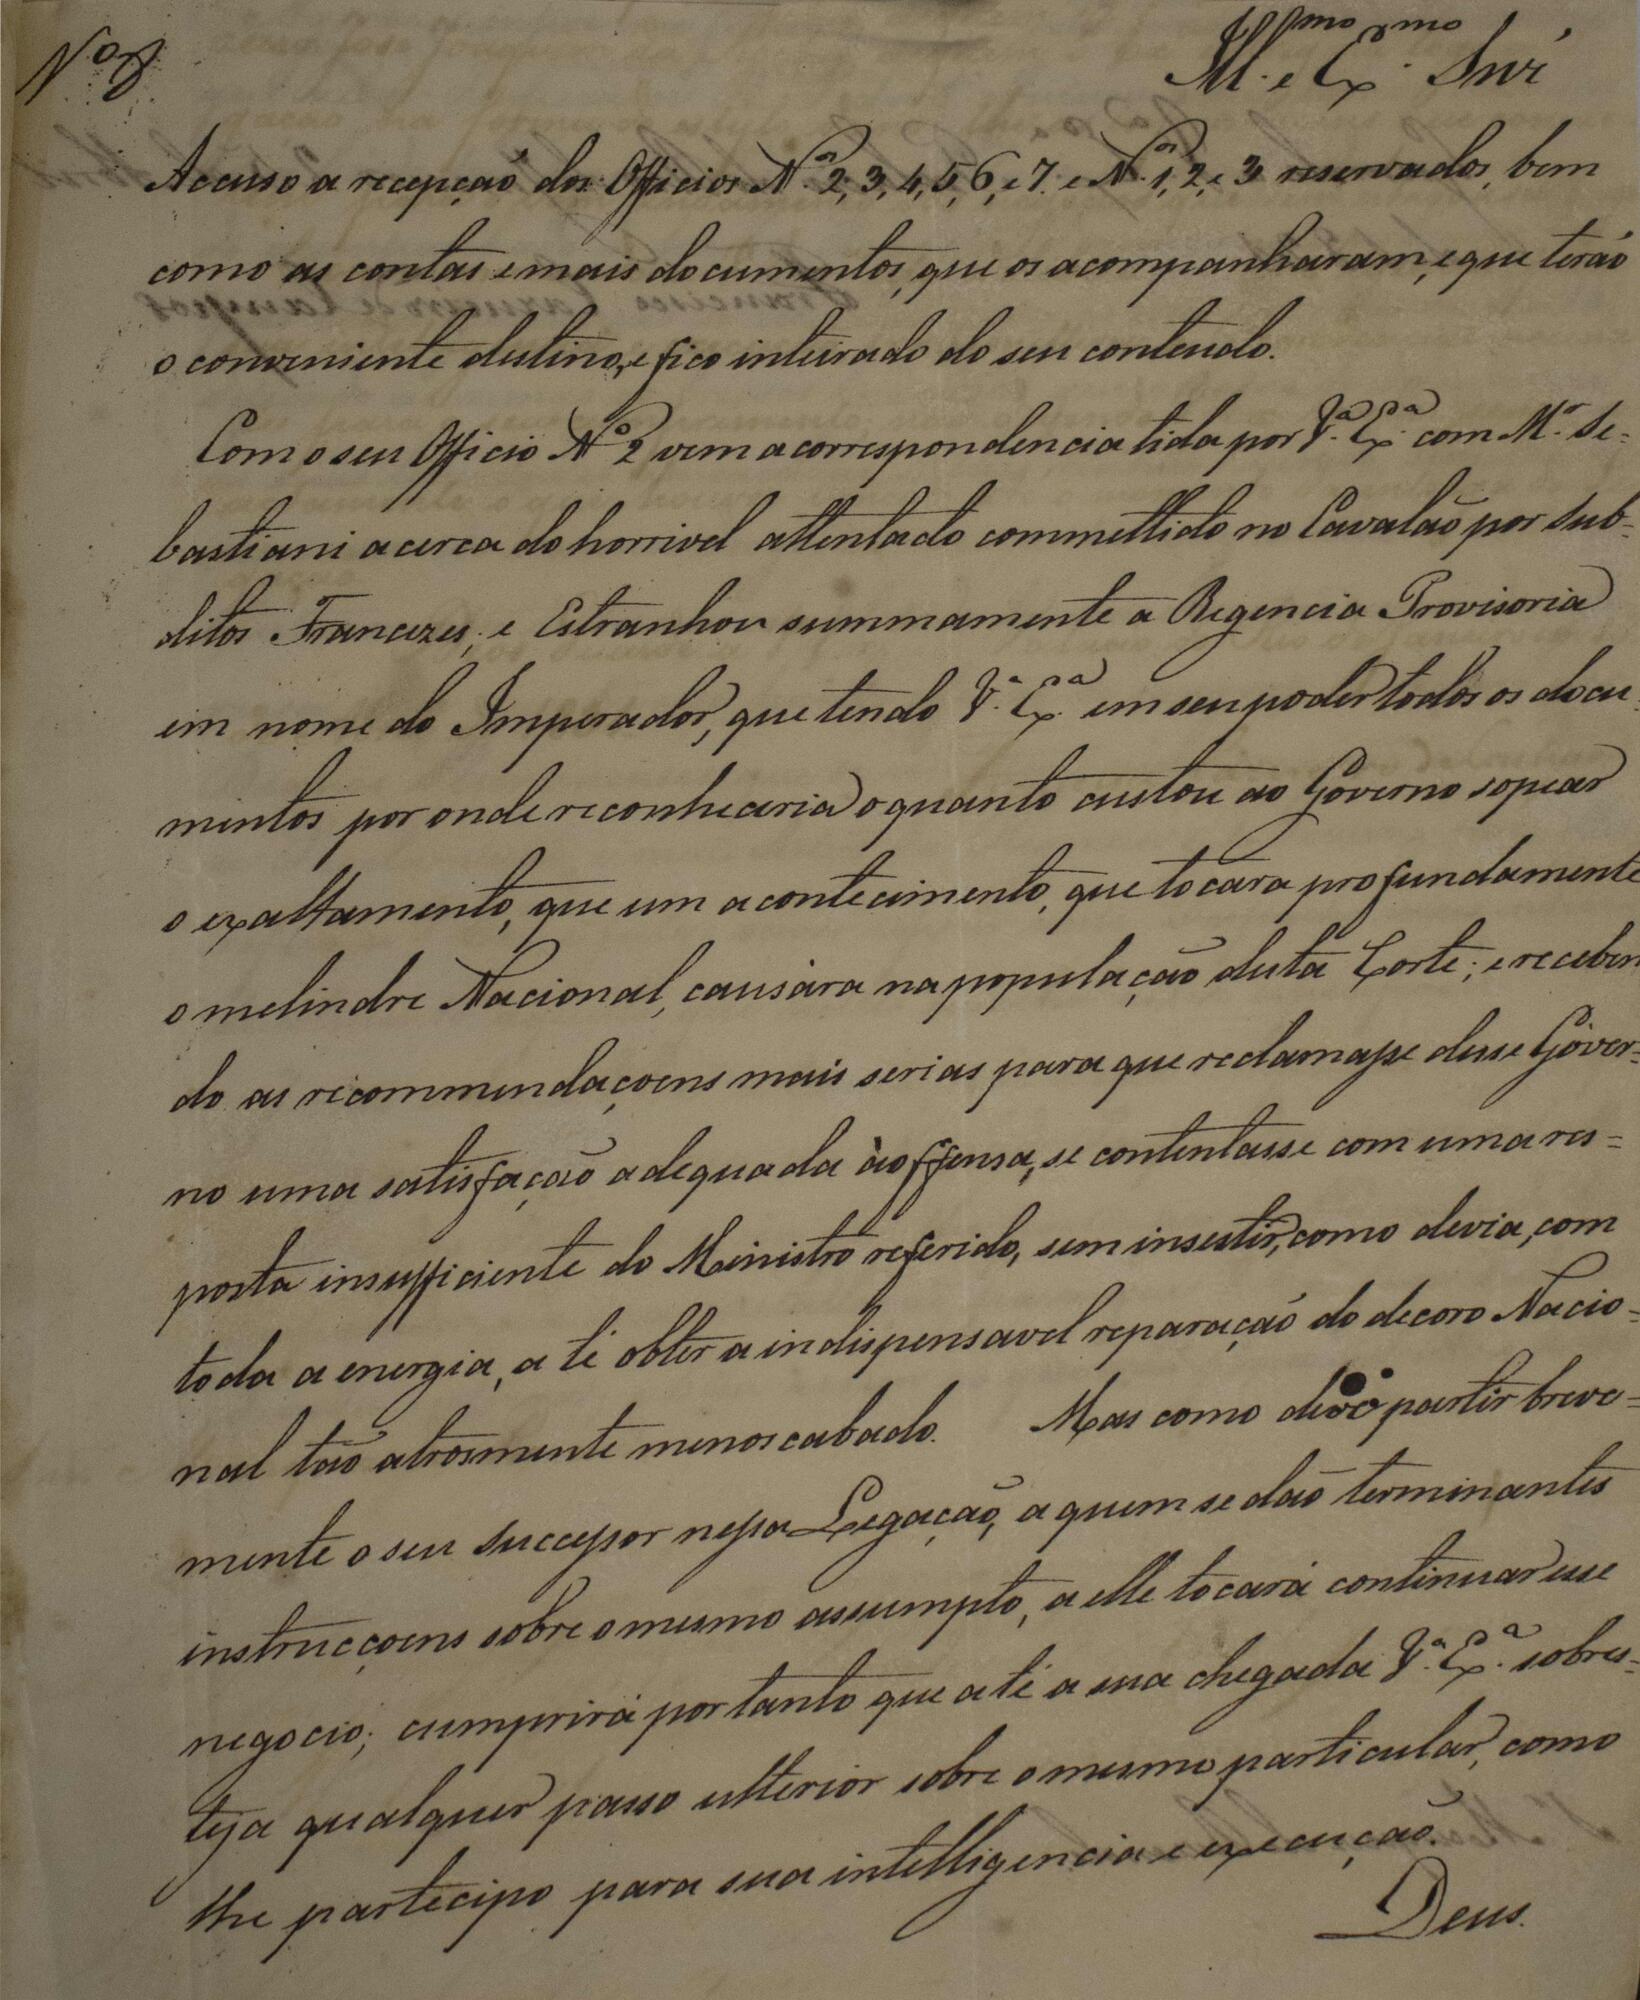 Nº 8
Illmo e Exmo Snr
Accuso a recepção dos Officios Nos 2, 3, 4, 5, 6, e 7. e Nos 1, 2, e 3 reservados, bem
como as contas e mais documentos, que os acompanharam, e que terão
o conveniente destino, e fico inteirado do seu contendo.
Com o seu Officio Nº 2 vem a correspondencia tida por Va. Exa. com Mr. Se=
bastiani acerca do horrivel attentado commettido no Cavalão por sub=
ditos Francezes; e Estranhou summamente a Regencia Provisoria
em nome do Imperador, que tendo Va. Exa. em seu poder todos os docu
mentos por onde reconheceria o quanto custou ao Governo sopear
o exaltamento, que um acontecimento, que tocára profundamente
o melindre Nacional, causára na população desta Corte; e receben
do as recommendaçoens mais serias para que reclamasse desse Gover=
no uma satisfação adequada à offensa, se contentasse com uma res=
posta insufficiente do Ministro referido, sem insestir, como devia, com
toda a energia, até obter a indispensavel reparação do decoro Nacio=
nal tão atrosmente menoscabado. Mas como deve partir breve=
mente o seu successor nessa Legação, a quem se dão terminantes
instrucçoens sobre o mesmo assumpto, a elle tocará continuar esse
negocio; cumprirá portanto que até a sua chegada Va. Exa. sobres=
teja qualquer passo ulterior sobre o mesmo particular, como
lhe partecipo para sua intelligencia e execução.
Deus.